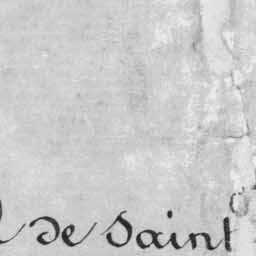 de Saint